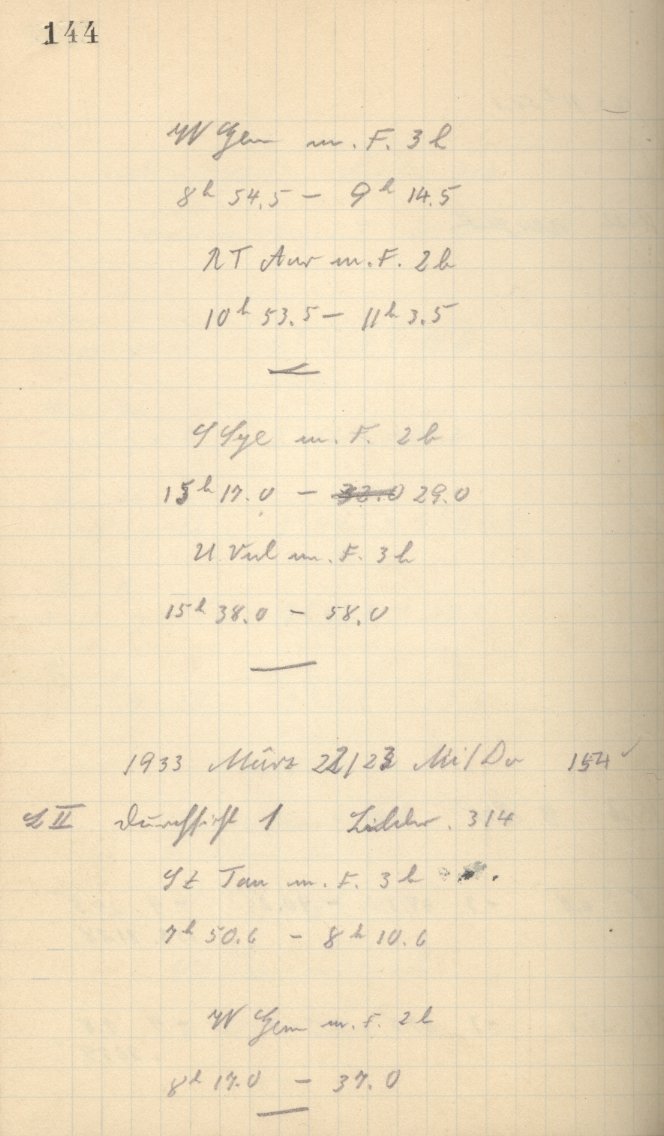 144
W Gem m. F. 3 h
8h 54.5 — 9h 14.5
RT Aur m. F. 2 h
10h 53.5 — 11h 3.5
m. F. 2 h
15h 17.0 — 32.0 29.0
U Vul m. F. 3 h
15h 38.0 — 58.0
1933 März 22/23 Mi/Do 154
L II Durchsicht 1 Bilder. 314
SZ Tau m. F. 3 h
7h 50.6 — 8h 10.6
W Gem m. F. 2 h
8h 17.0 — 37.0